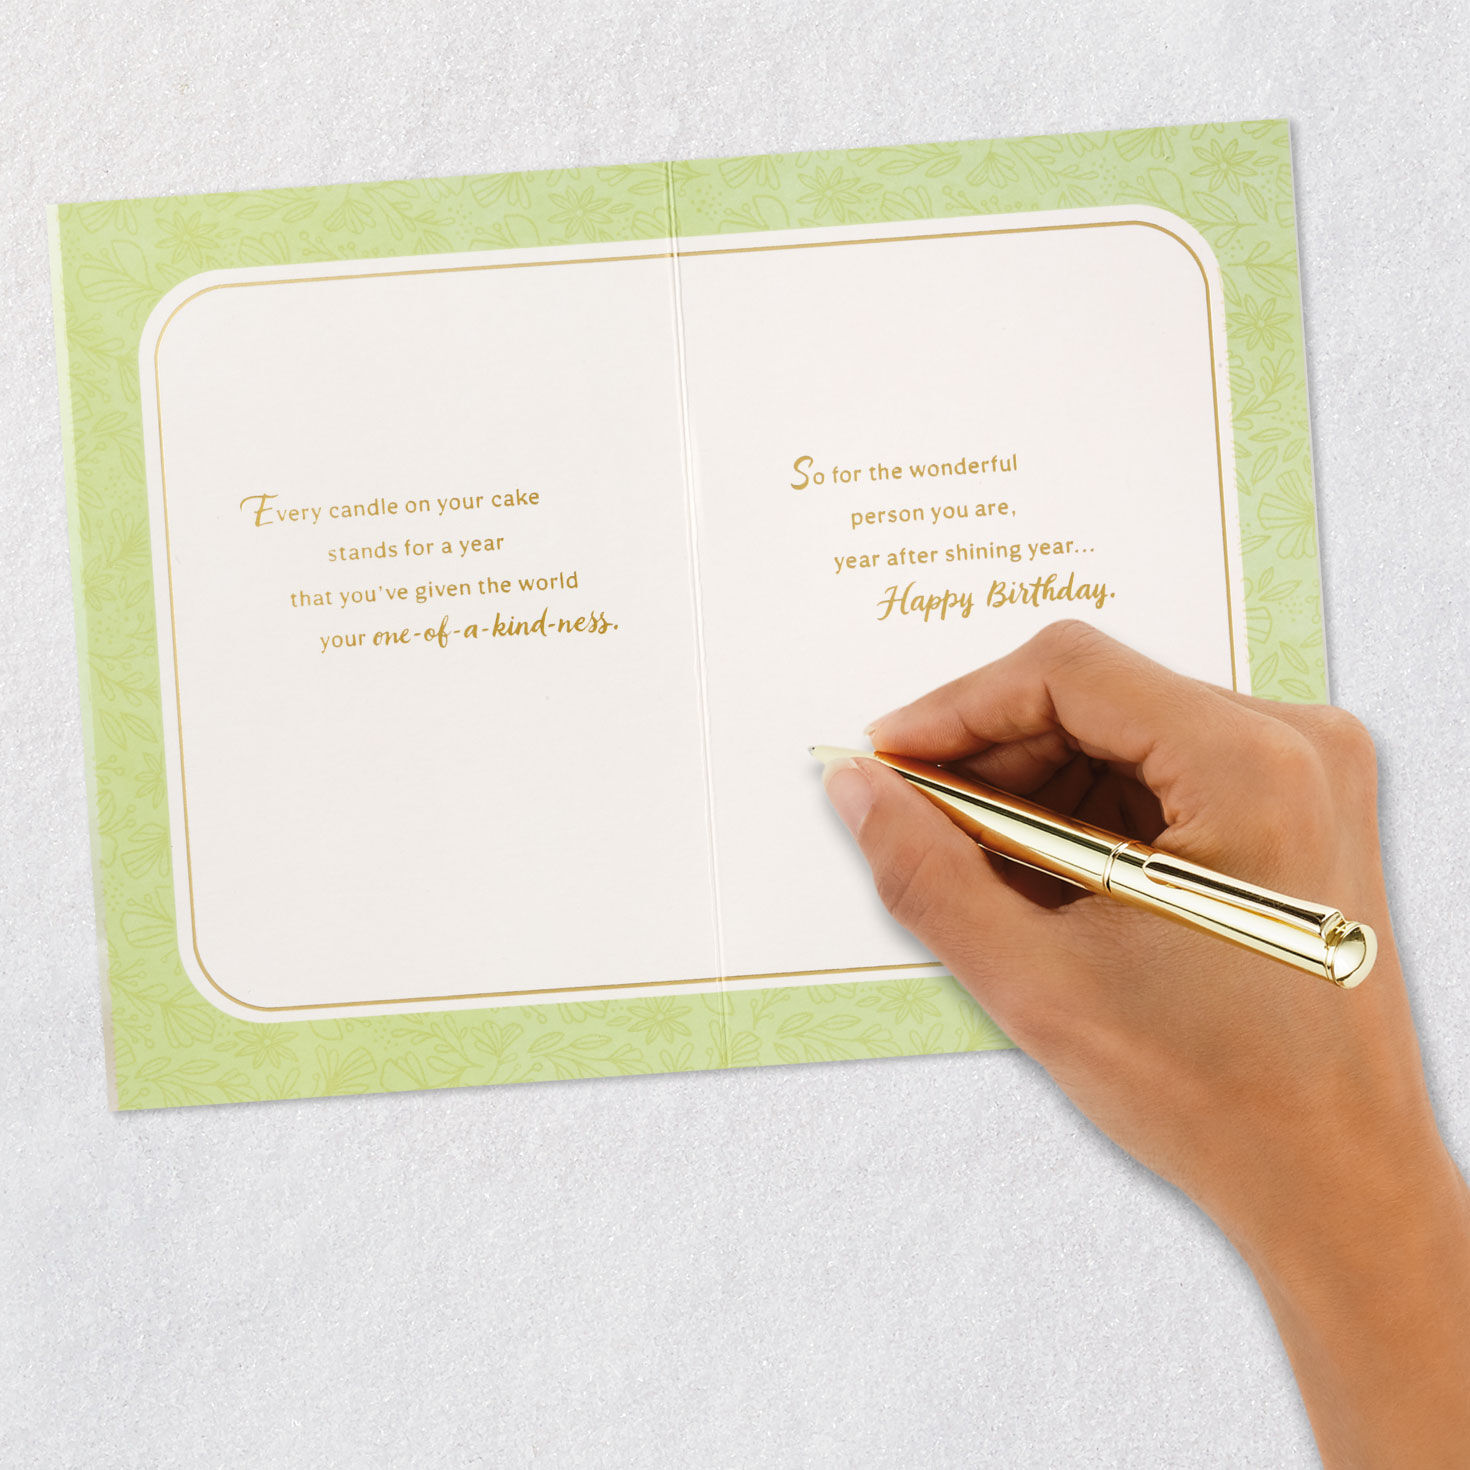 Every candle on your cake
stands for a year
that you've given the world
your one-of-a-kind-ness.
So for the wonderful
person you are,
year after shining year...
Happy Birthday.